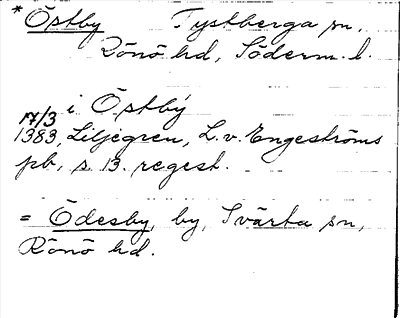 * Östby Tystberga sn,
Rönö hd, Söderm. l.
i Östbý
17/3
1383, Liljegren, L. v. Engeströms
pb, s 13. regest.
= Ödesby, by, Svärta sn,
Rönö hd.